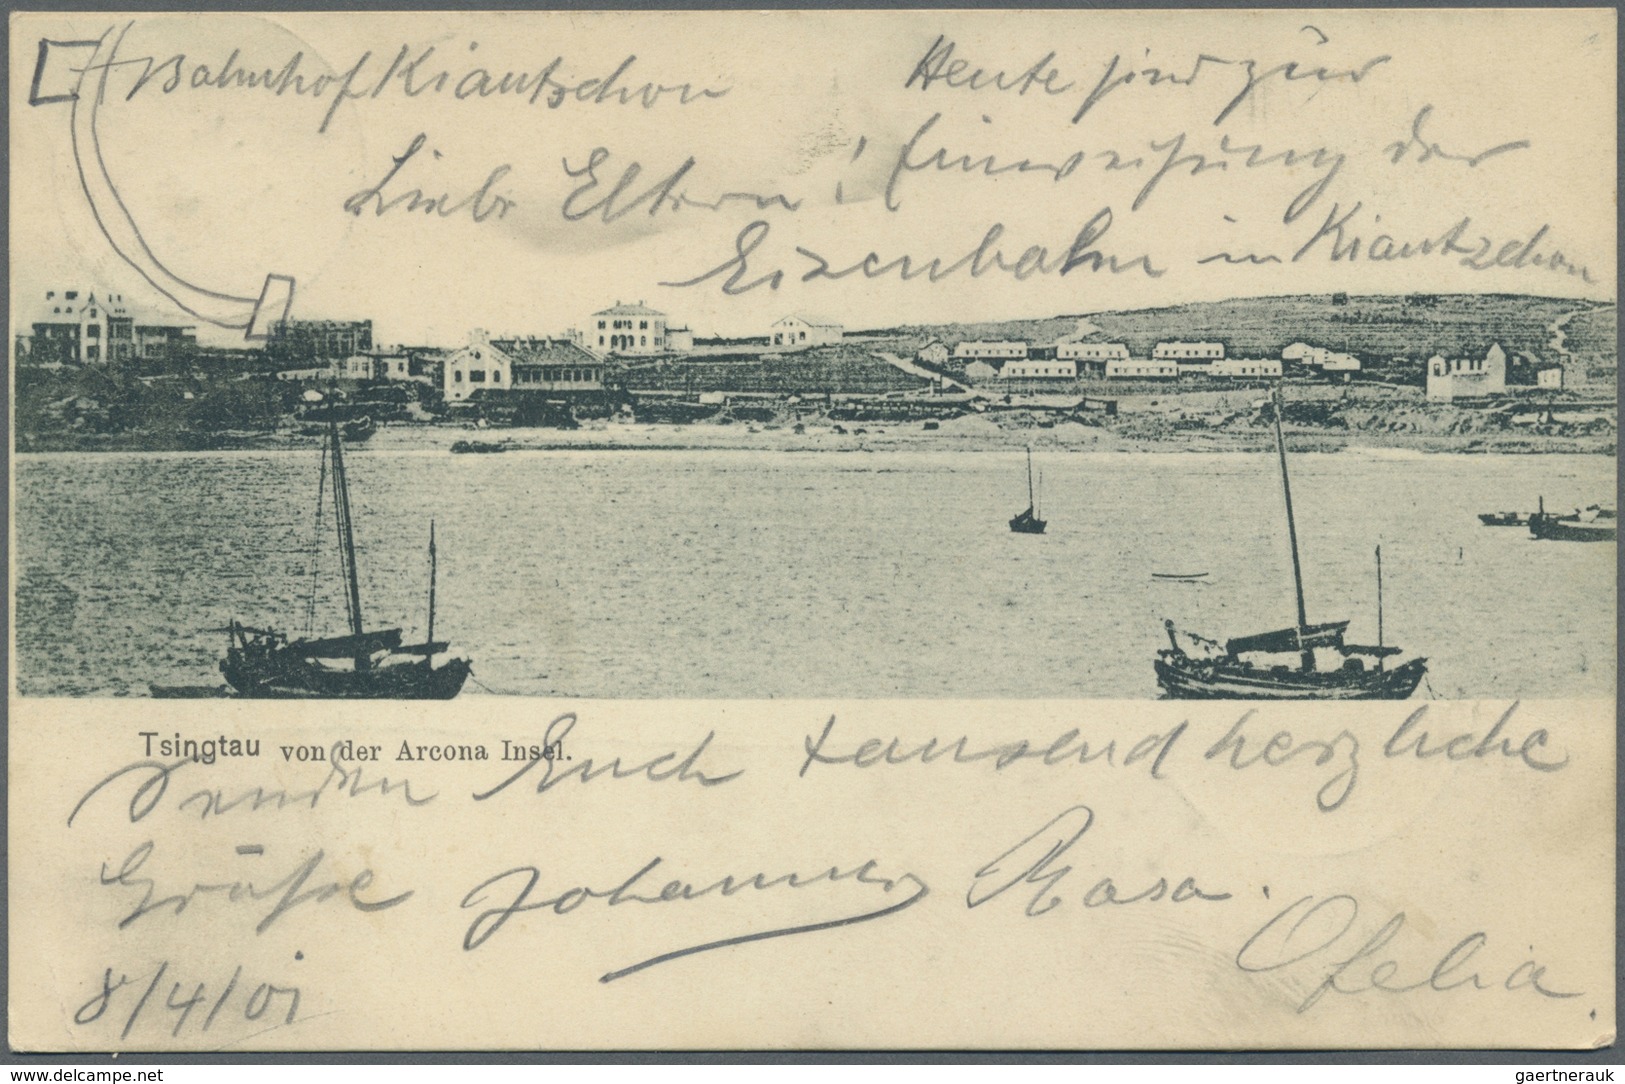 Bahnhof Kiautschou
Liebe Eltern! Heute sind zur
Einweihung der
Eisenbahn in Kiautzchou
Tsingtau von der Arcona Insel.
Senden Euch tausend herzliche
Grüße Johannes Rosa.
Ofelia.
8/4/01
delcampe.net
gaertnerauk